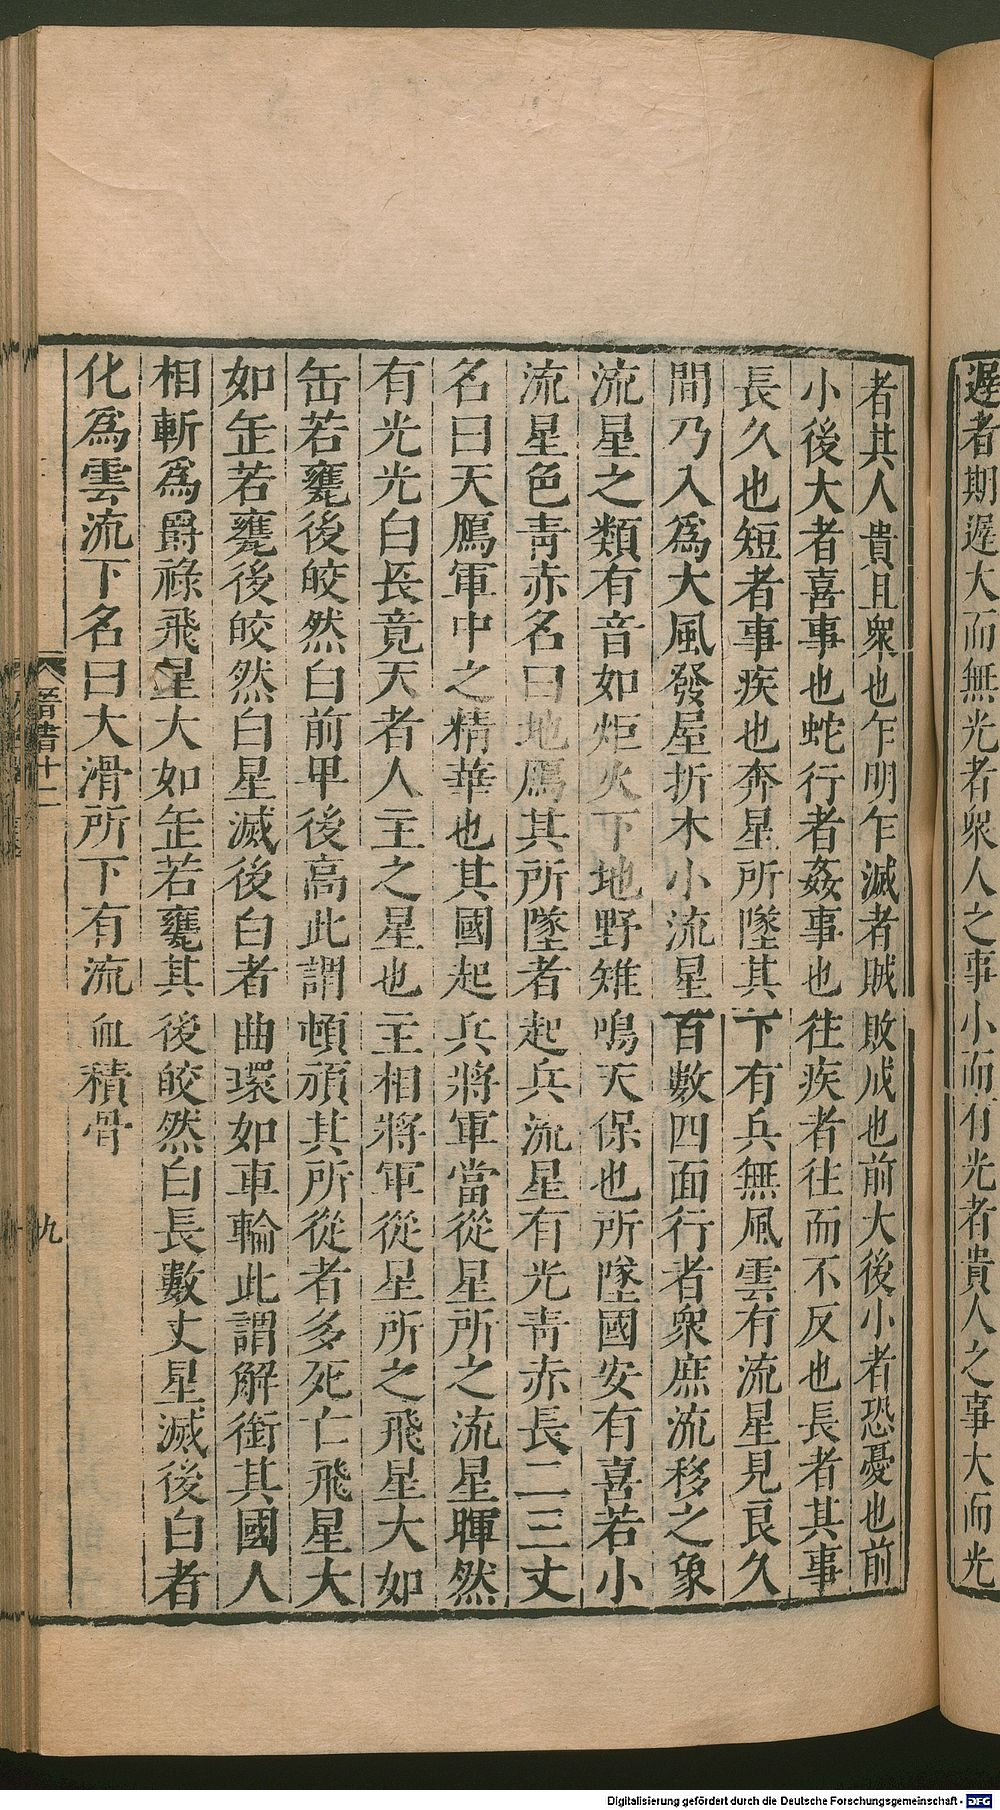 遲者期遲大而無光者衆人之事小而有光者貴人之事大而光
者其人貴且衆也乍明乍滅者賊敗成也前大後小者恐憂也前
小後大者喜事也蛇行者姦事也往疾者往而不反也長者其事
長久也短者事疾也奔星所墜其下有兵無風雲有流星見良久
間乃入爲大風發屋折木小流星百數四面行者衆庶流移之象
流星之類有音如炬火下地野雉鳴天保也所墜國安有喜若小
流星色靑赤名曰地鴈其所墜者起兵流星有光靑赤長二三丈
名曰天鴈軍中之精華也其國起兵將軍當從星所之流星暉然
有光光白長竟天者人主之星也主相將軍從星所之飛星大如
缶若甕後皎然白前甲後高此謂頓頑其所從者多死亡飛星大
如缶若甕後皎然白星滅後白者曲環如車輪此謂解銜其國人
相斬爲爵祿飛星大如缶若甕其後皎然白長數丈星滅後白者
化爲雲流下名曰大滑所下有流血積骨
晉書十二
九
Digitalisierung gefördert durch die Deutsche Forschungsgemeinschaft - DFG